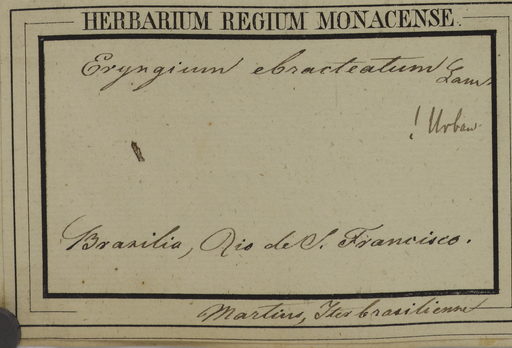 HERBARIUM REGIUM MONACENSE.
Eryngium ebracteatum Lam.
! Urban
Brazilia, Rio de S. Francisco.
Martius, Iter brasiliense